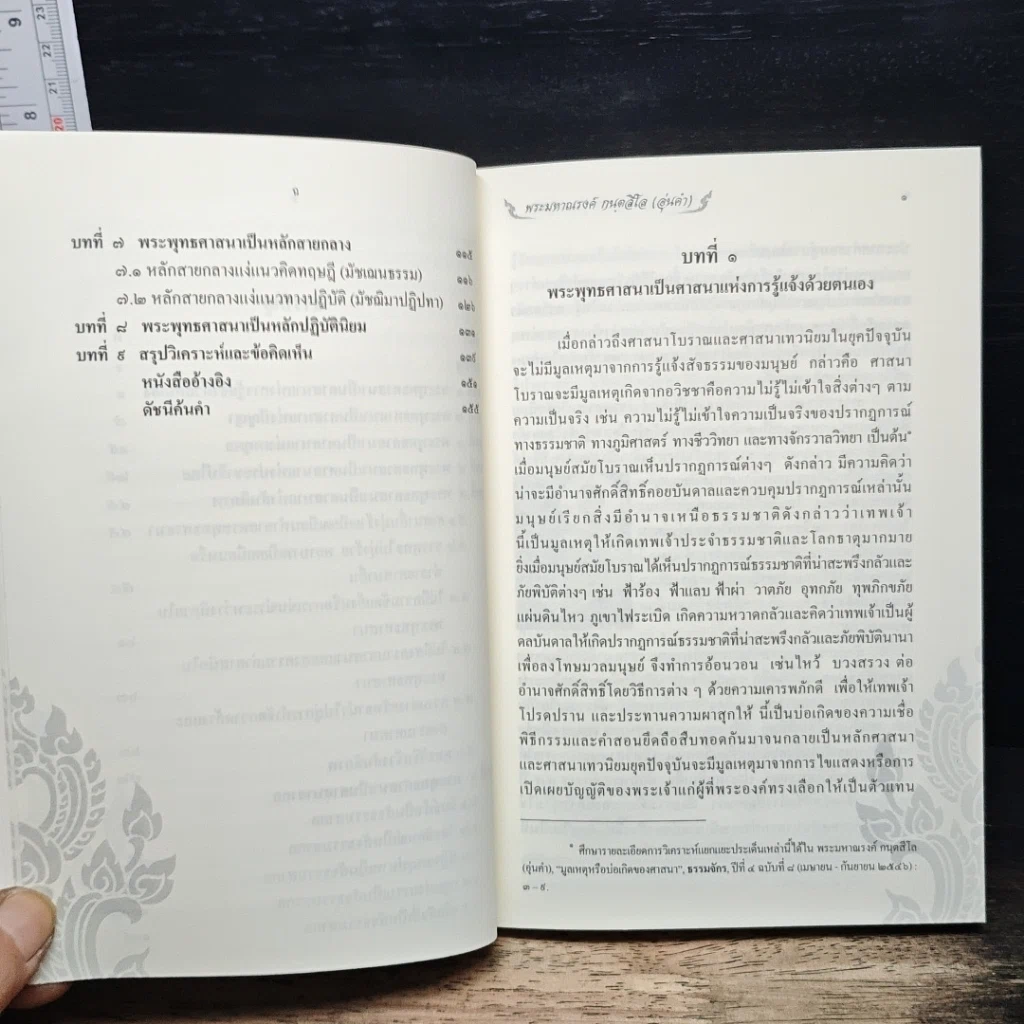 9
8
23
22
21
20
ฤ
บทที่ ๗ พระพุทธศาสนาเป็นหลักสายกลาง ๑๑๕
๗.๑ หลักสายกลางแง่แนวคิดทฤษฎี (มัชเฌนธรรม) ๑๑๖
๗.๒ หลักสายกลางแง่แนวทางปฏิบัติ (มัชฌิมาปฏิปทา) ๑๒๖
บทที่ ๘ พระพุทธศาสนาเป็นหลักปฏิบัตินิยม ๑๓๑
บทที่ ๙ สรุปวิเคราะห์และข้อคิดเห็น ๑๓๙
หนังสืออ้างอิง ๑๕๑
ดัชนีค้นคำ ๑๕๕
พระมหาณรงค์ กนฺตสีโล (อุ่นคำ) ๑
บทที่ ๑
พระพุทธศาสนาเป็นศาสนาแห่งการรู้แจ้งด้วยตนเอง
เมื่อกล่าวถึงศาสนาโบราณและศาสนาเทวนิยมในยุคปัจจุบัน
จะไม่มีมูลเหตุมาจากการรู้แจ้งสัจธรรมของมนุษย์ กล่าวคือ ศาสนา
โบราณจะมีมูลเหตุเกิดจากอวิชชาคือความไม่รู้ไม่เข้าใจสิ่งต่างๆ ตาม
ความเป็นจริง เช่น ความไม่รู้ไม่เข้าใจความเป็นจริงของปรากฏการณ์
ทางธรรมชาติ ทางภูมิศาสตร์ ทางชีววิทยา และทางจักรวาลวิทยา เป็นต้น*
เมื่อมนุษย์สมัยโบราณเห็นปรากฏการณ์ต่างๆ ดังกล่าว มีความคิดว่า
น่าจะมีอำนาจศักดิ์สิทธิ์คอยบันดาลและควบคุมปรากฏการณ์เหล่านั้น
มนุษย์เรียกสิ่งมีอำนาจเหนือธรรมชาติดังกล่าวว่าเทพเจ้า
นี้เป็นมูลเหตุให้เกิดเทพเจ้าประจำธรรมชาติและโลกธาตุมากมาย
ยิ่งเมื่อมนุษย์สมัยโบราณได้เห็นปรากฏการณ์ธรรมชาติที่น่าสะพรึงกลัวและ
ภัยพิบัติต่างๆ เช่น ฟ้าร้อง ฟ้าแลบ ฟ้าผ่า วาตภัย อุทกภัย ทุพภิกขภัย
แผ่นดินไหว ภูเขาไฟระเบิด เกิดความหวาดกลัวและคิดว่าเทพเจ้าเป็นผู้
ดลบันดาลให้เกิดปรากฏการณ์ธรรมชาติที่น่าสะพรึงกลัวและภัยพิบัตินานา
เพื่อลงโทษมวลมนุษย์ จึงทำการอ้อนวอน เซ่นไหว้ บวงสรวง ต่อ
อำนาจศักดิ์สิทธิ์โดยวิธีการต่าง ๆ ด้วยความเคารพภักดี เพื่อให้เทพเจ้า
โปรดปราน และประทานความผาสุกให้ นี้เป็นบ่อเกิดของความเชื่อ
พิธีกรรมและคำสอนยึดถือสืบทอดกันมาจนกลายเป็นหลักศาสนา
และศาสนาเทวนิยมยุคปัจจุบันจะมีมูลเหตุมาจากการไขแสดงหรือการ
เปิดเผยบัญญัติของพระเจ้าแก่ผู้ที่พระองค์ทรงเลือกให้เป็นตัวแทน
* ศึกษารายละเอียดการวิเคราะห์แยกแยะประเด็นเหล่านี้ได้ใน พระมหาณรงค์ กนฺตสีโล
(อุ่นคำ), "มูลเหตุหรือบ่อเกิดของศาสนา", ธรรมจักร, ปีที่ ๔ ฉบับที่ ๘ (เมษายน - กันยายน ๒๕๔๖) :
๓ – ๙.